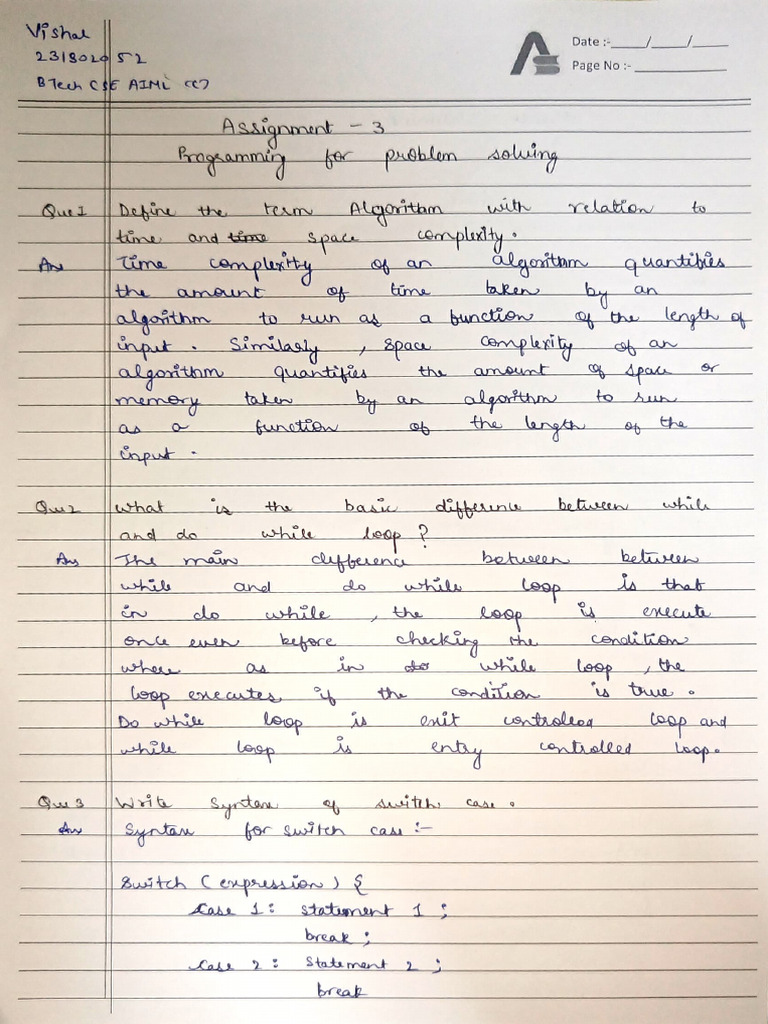 Vishal
231302052
BTech CSE AIML (C)
Date :-____/____/____
Page No :- ____________
Assignment - 3
Programming for problem solving
Que 1 Define the term Algorithm with relation to
time and time space complexity.
Ans Time complexity of an algorithm quantifies
the amount of time taken by an
algorithm to run as a function of the length of
input. Similarly, space complexity of an
algorithm quantifies the amount of space or
memory taken by an algorithm to run
as a function of the length of the
input.
Que 2 What is the basic difference between while
and do while loop?
Ans The main difference between between
while and do while loop is that
in do while, the loop is execute
once even before checking the condition
where as in do while loop, the
loop executes if the condition is true.
Do while loop is exit controlled loop and
while loop is entry controlled loop.
Que 3 Write Syntax of switch case.
Ans Syntax for switch case :-
Switch (expression) {
Case 1: statement 1;
break;
Case 2: Statement 2;
break